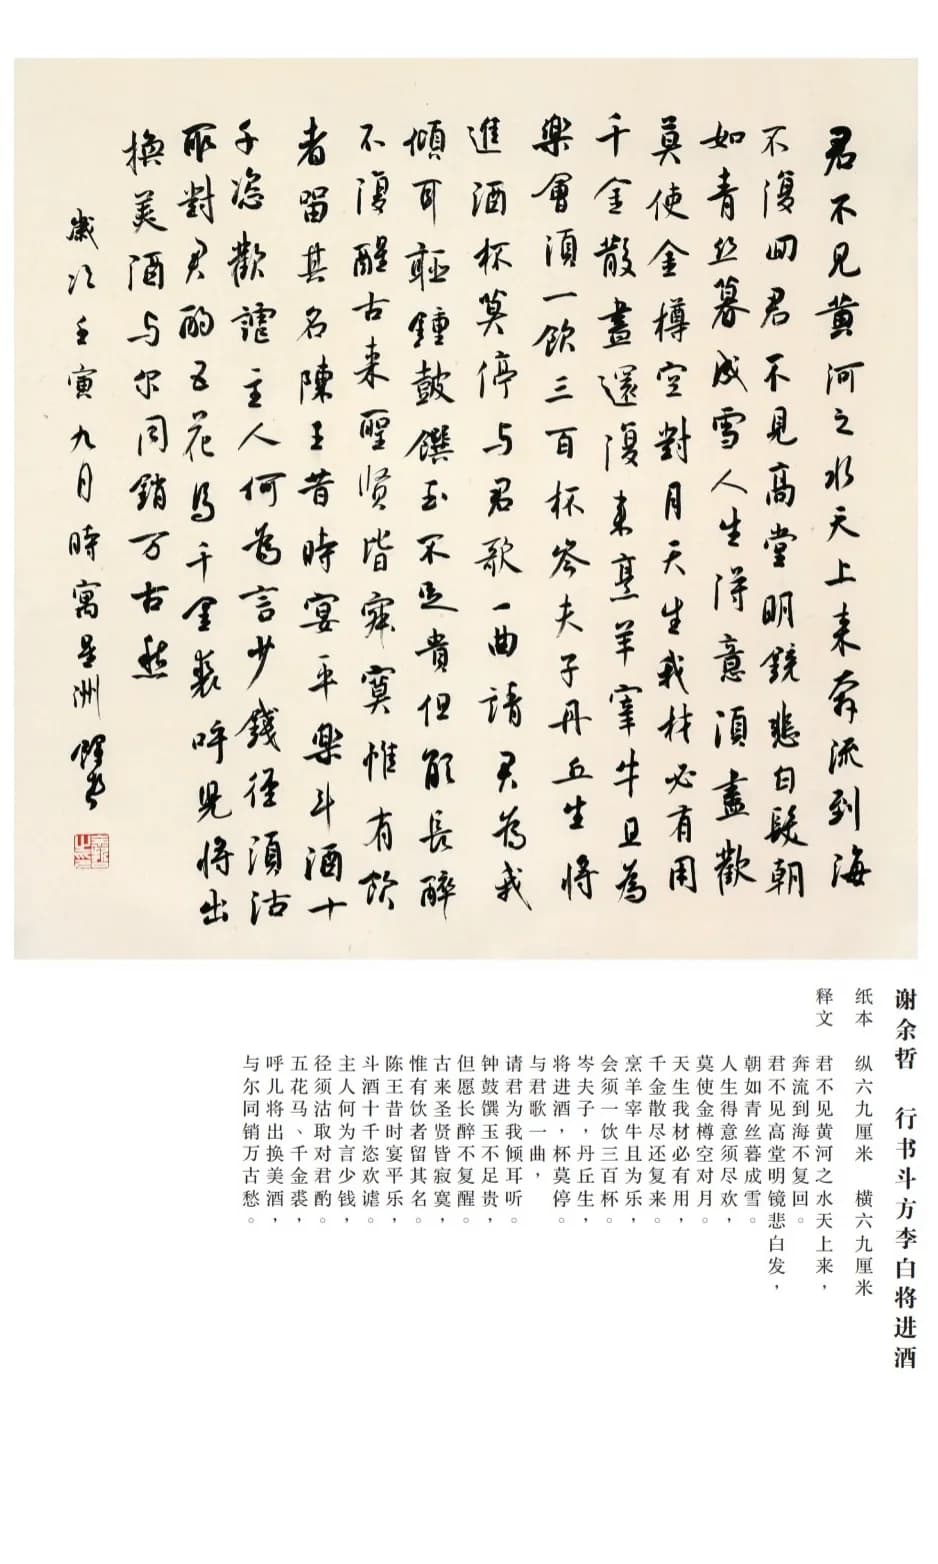 君不見黄河之水天上来奔流到海
不復回君不見高堂明鏡悲白髮朝
如青丝暮成雪人生得意須盡歡
莫使金樽空對月天生我材必有用
千金散盡還復来烹羊宰牛且為
樂會須一飲三百杯岑夫子丹丘生将
進酒杯莫停与君歌一曲請君為我
傾耳聽鍾鼓饌玉不足貴但願長醉
不復醒古来聖贤皆寂寞惟有飲
者留其名陳王昔時宴平樂斗酒十
千恣歡謔主人何為言少錢径須沽
取對君酌五花馬千金裘呼児将出
換美酒与尔同銷万古愁
歲次壬寅九月時寓星洲
谢余哲 行书斗方李白将进酒
纸本 纵六九厘米 横六九厘米
释文
君不见黄河之水天上来，
奔流到海不复回。
君不见高堂明镜悲白发，
朝如青丝暮成雪。
人生得意须尽欢，
莫使金樽空对月。
天生我材必有用，
千金散尽还复来。
烹羊宰牛且为乐，
会须一饮三百杯。
岑夫子，丹丘生，
将进酒，杯莫停。
与君歌一曲，
请君为我倾耳听。
钟鼓馔玉不足贵，
但愿长醉不复醒。
古来圣贤皆寂寞，
惟有饮者留其名。
陈王昔时宴平乐，
斗酒十千恣欢谑。
主人何为言少钱，
径须沽取对君酌。
五花马、千金裘，
呼儿将出换美酒，
与尔同销万古愁。